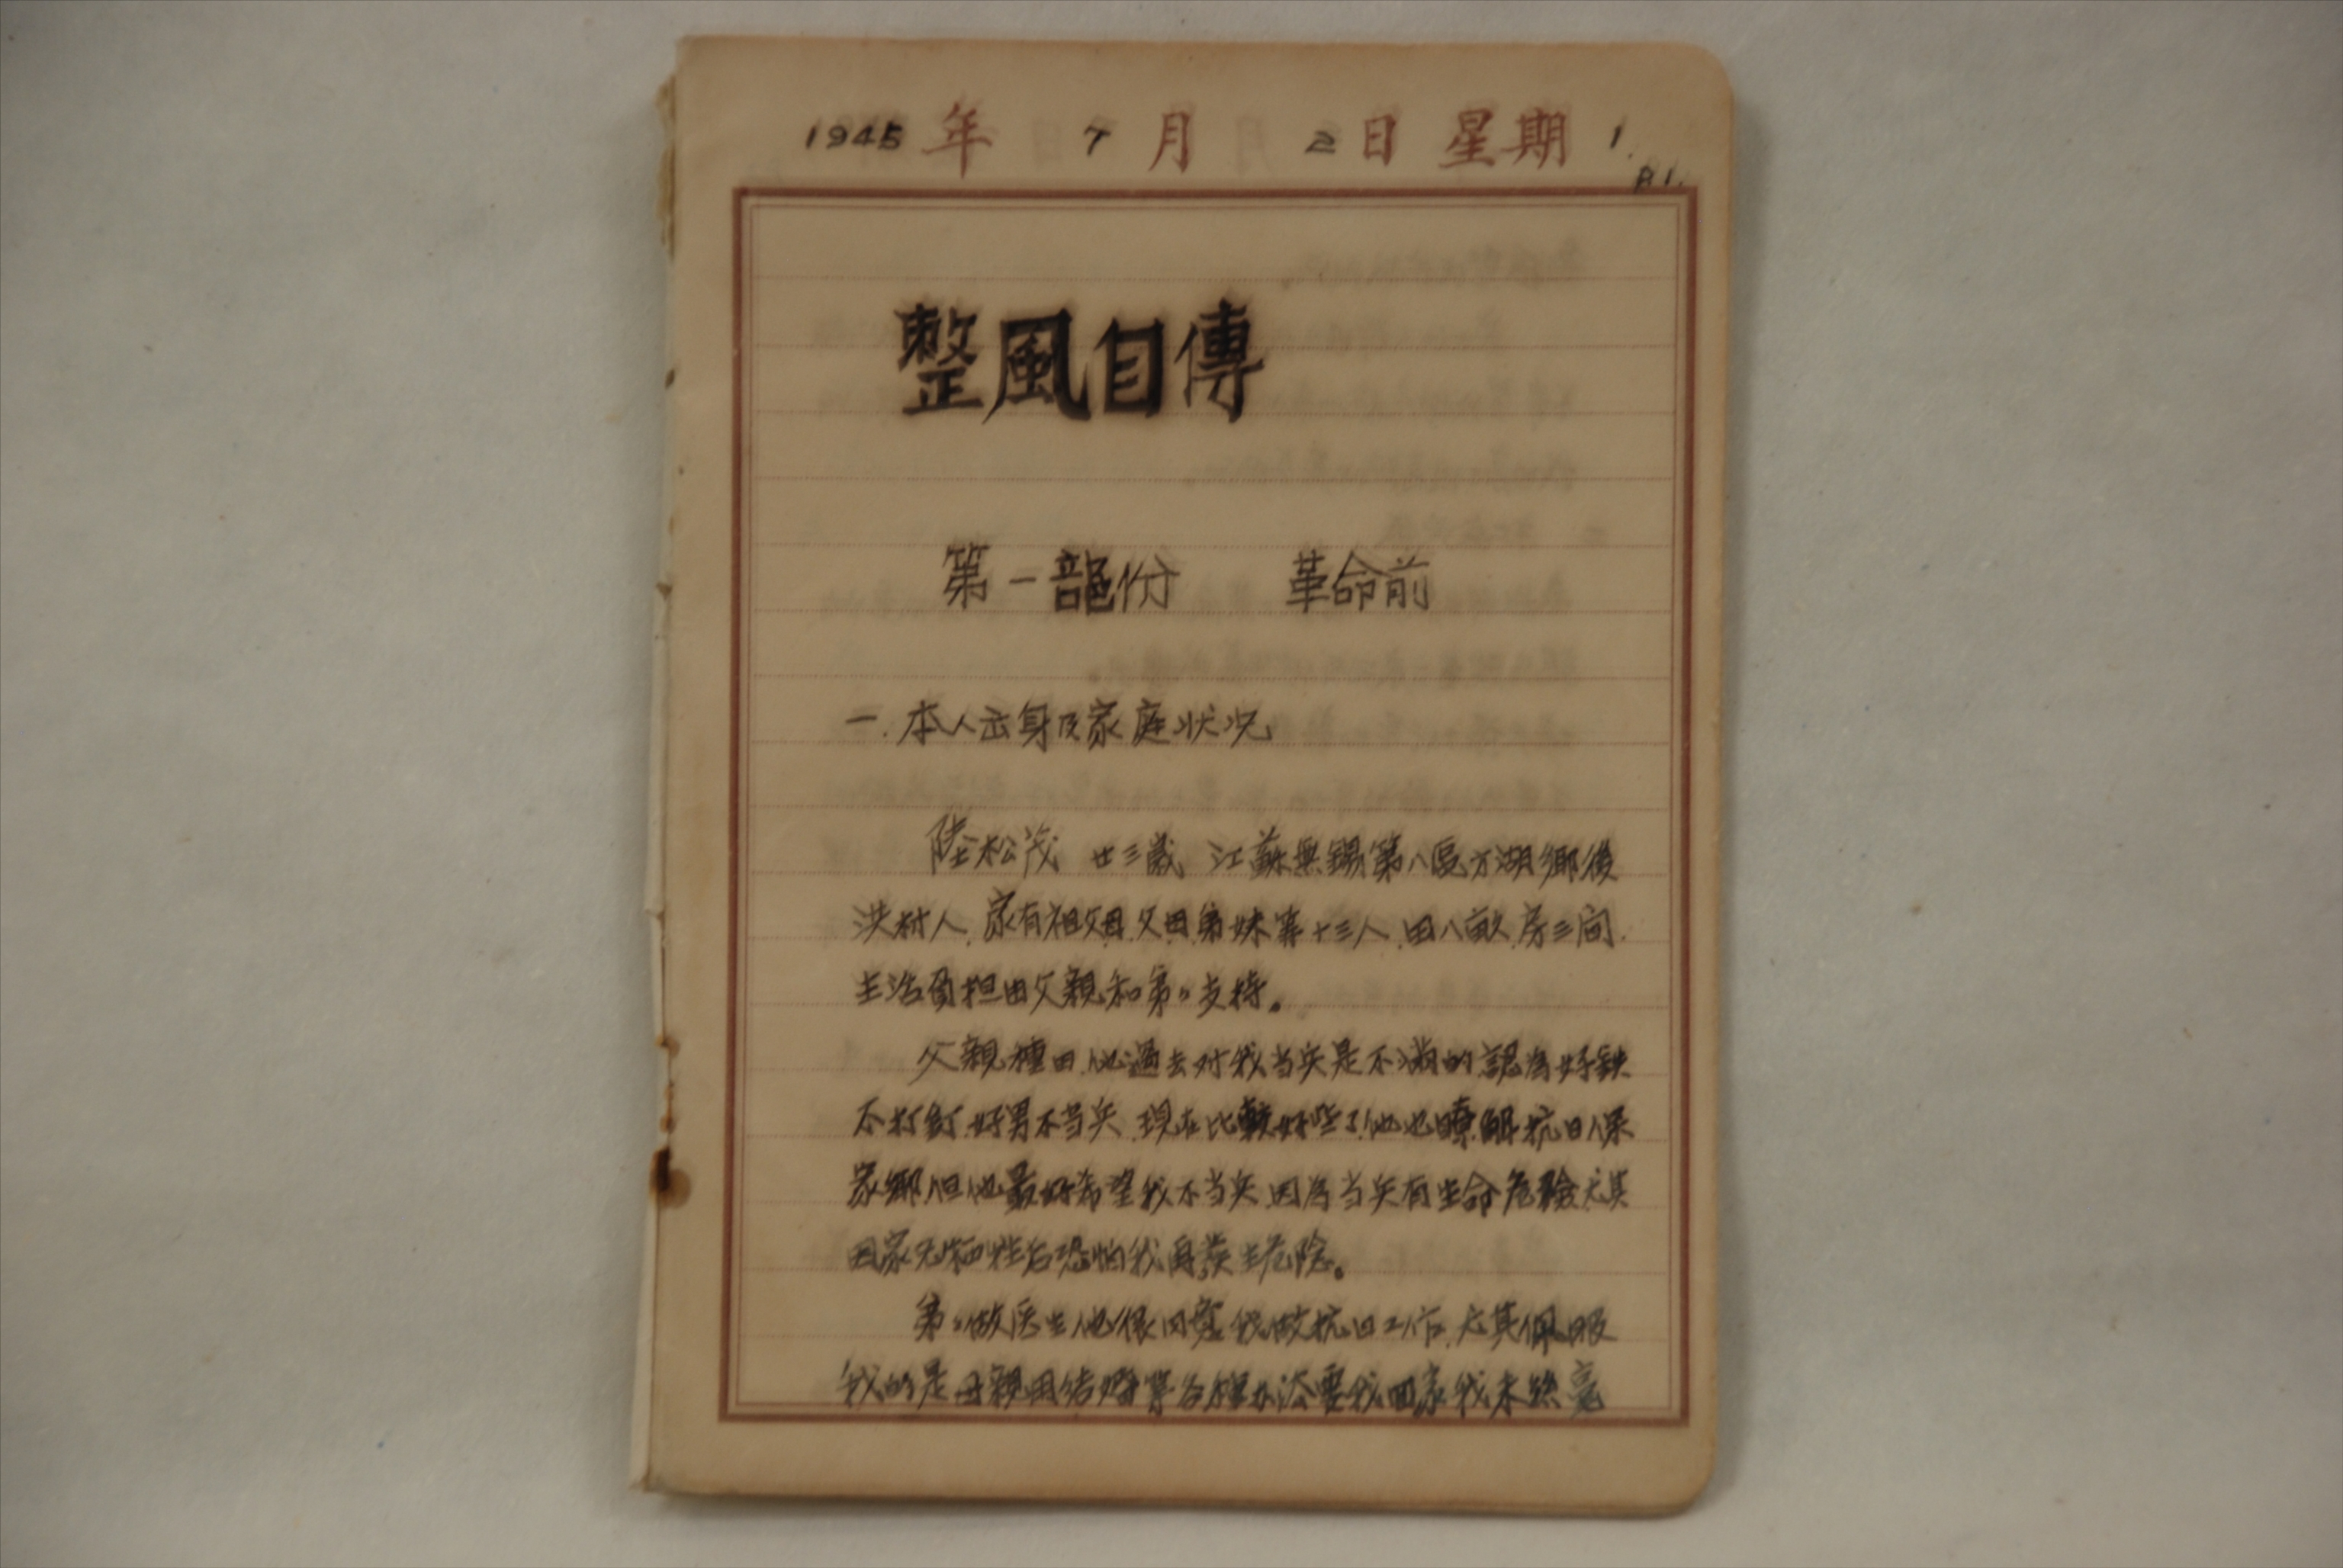 1945 年 7 月 2 日 星期 1.
P.1.
整風自傳
第一部份 革命前
一. 本人出身及家庭状况
陸松茂 廿三歲 江蘇無錫第八區方湖鄉後
洪村人.家有祖父母.父母.弟妹等十三人.田八畝.房三间.
生活負担由父親和弟〃支持。
父親種田.他過去对我当兵是不满的.認為好鉄
不打釘.好男不当兵.現在比較好些了.他也瞭解抗日保
家鄉.但他最好希望我不当兵.因為当兵有生命危險.尤其
回家兄牺牲后恐怕我再發生危险。
弟〃做医生.他很同意我做抗日工作.尤其佩服
我的是母親用结婚等各種办法要我回家我未絲毫